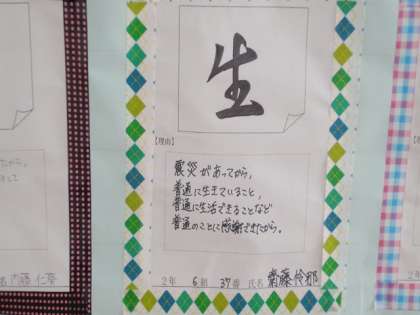 生
【理由】
震災があってから、
普通に生きていること、
普通に生活できることなど
普通のことに感謝できたから。
2年 6組 37番 氏名 齋藤怜那
名 内藤 仁
2年